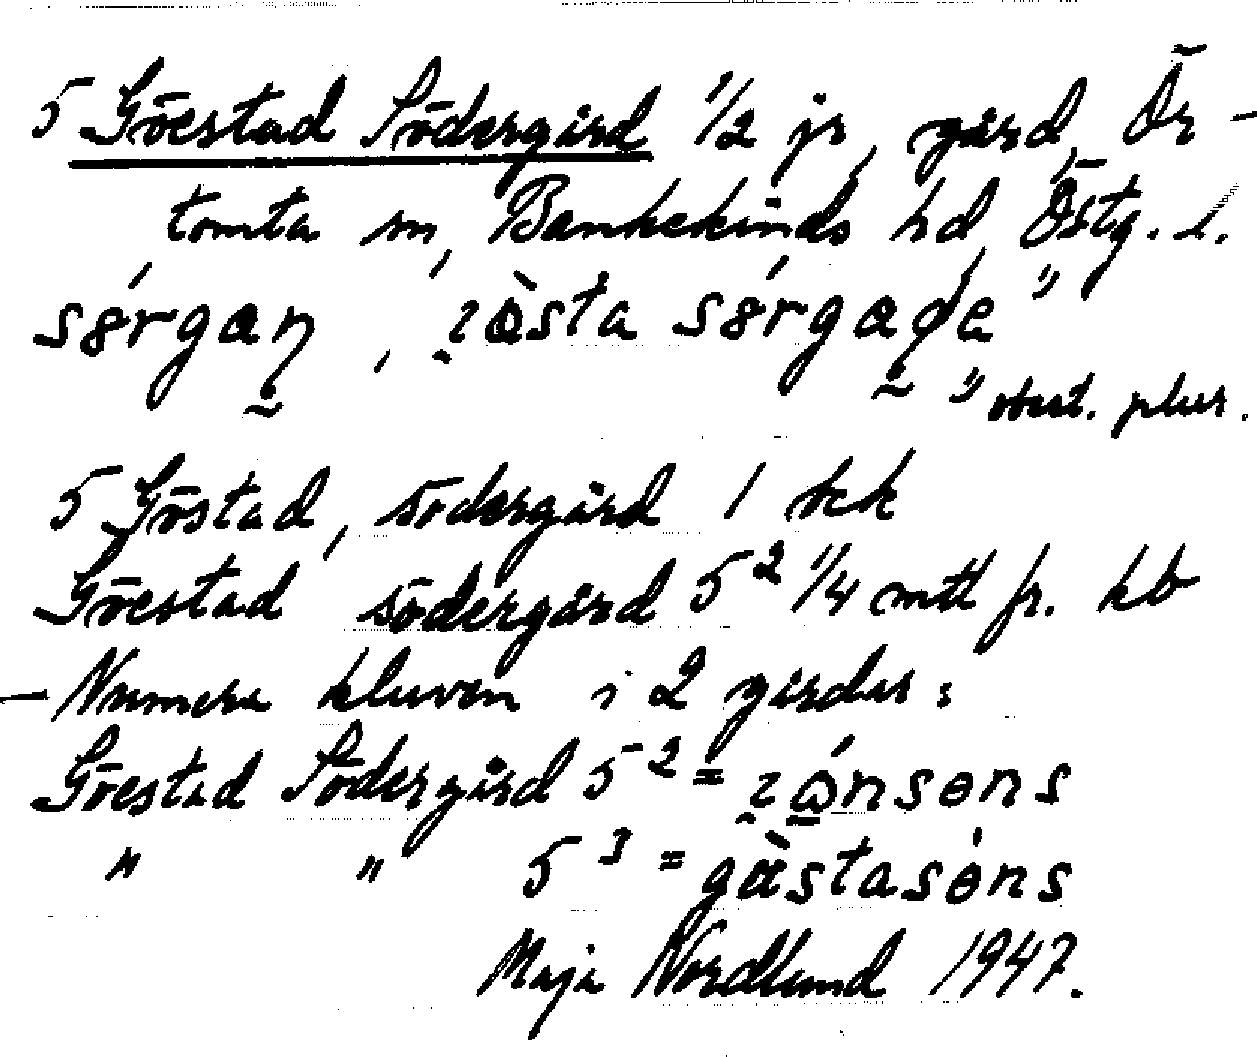 5 Göestad Södergård 1/2 jr, gård, Ör-
tomta sn, Bankekinds hd, Östg. l.
sørgaŋ, ɩ̯òsta sørgaɖe "
" obest. plur.
5 Göstad, södergård 1 sk
Göestad södergård 5² 1/4 mtl fr. hb
– Numera kluven i 2 gårdar:
Göestad Södergård 5² = ɩ̯ónsɵns
" " 5³ = gøstasɵns
Maja Nordlund 1947.